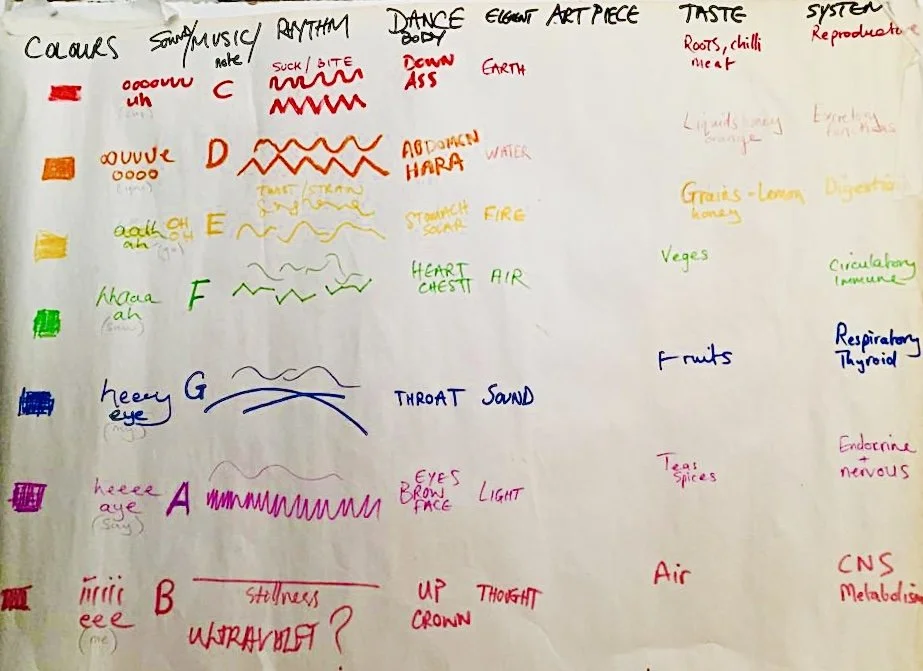 COLOURS SOUND/MUSIC/ note RHYTHM DANCE BODY ELEMENT ART PIECE TASTE SYSTEM
oooouuu uh C SUCK/BITE DOWN ASS EARTH Roots, chilli meat Reproductive
ouuuve oooo D ABDOMEN HARA WATER Liquids honey orange Excretory functions
aaah ah OH OH E TWIST/STRAIN STOMACH SOLAR FIRE Grains - Lemon honey Digestion
hhaaa ah F HEART CHEST AIR Veges Circulatory immune
heeey eye (my) G THROAT SOUND Fruits Respiratory Thyroid
heeee aye (say) A EYES BROW FACE LIGHT Teas Spices Endocrine + nervous
iiiiii eee (me) B Stillness ULTRAVIOLET? UP CROWN THOUGHT Air CNS Metabolism